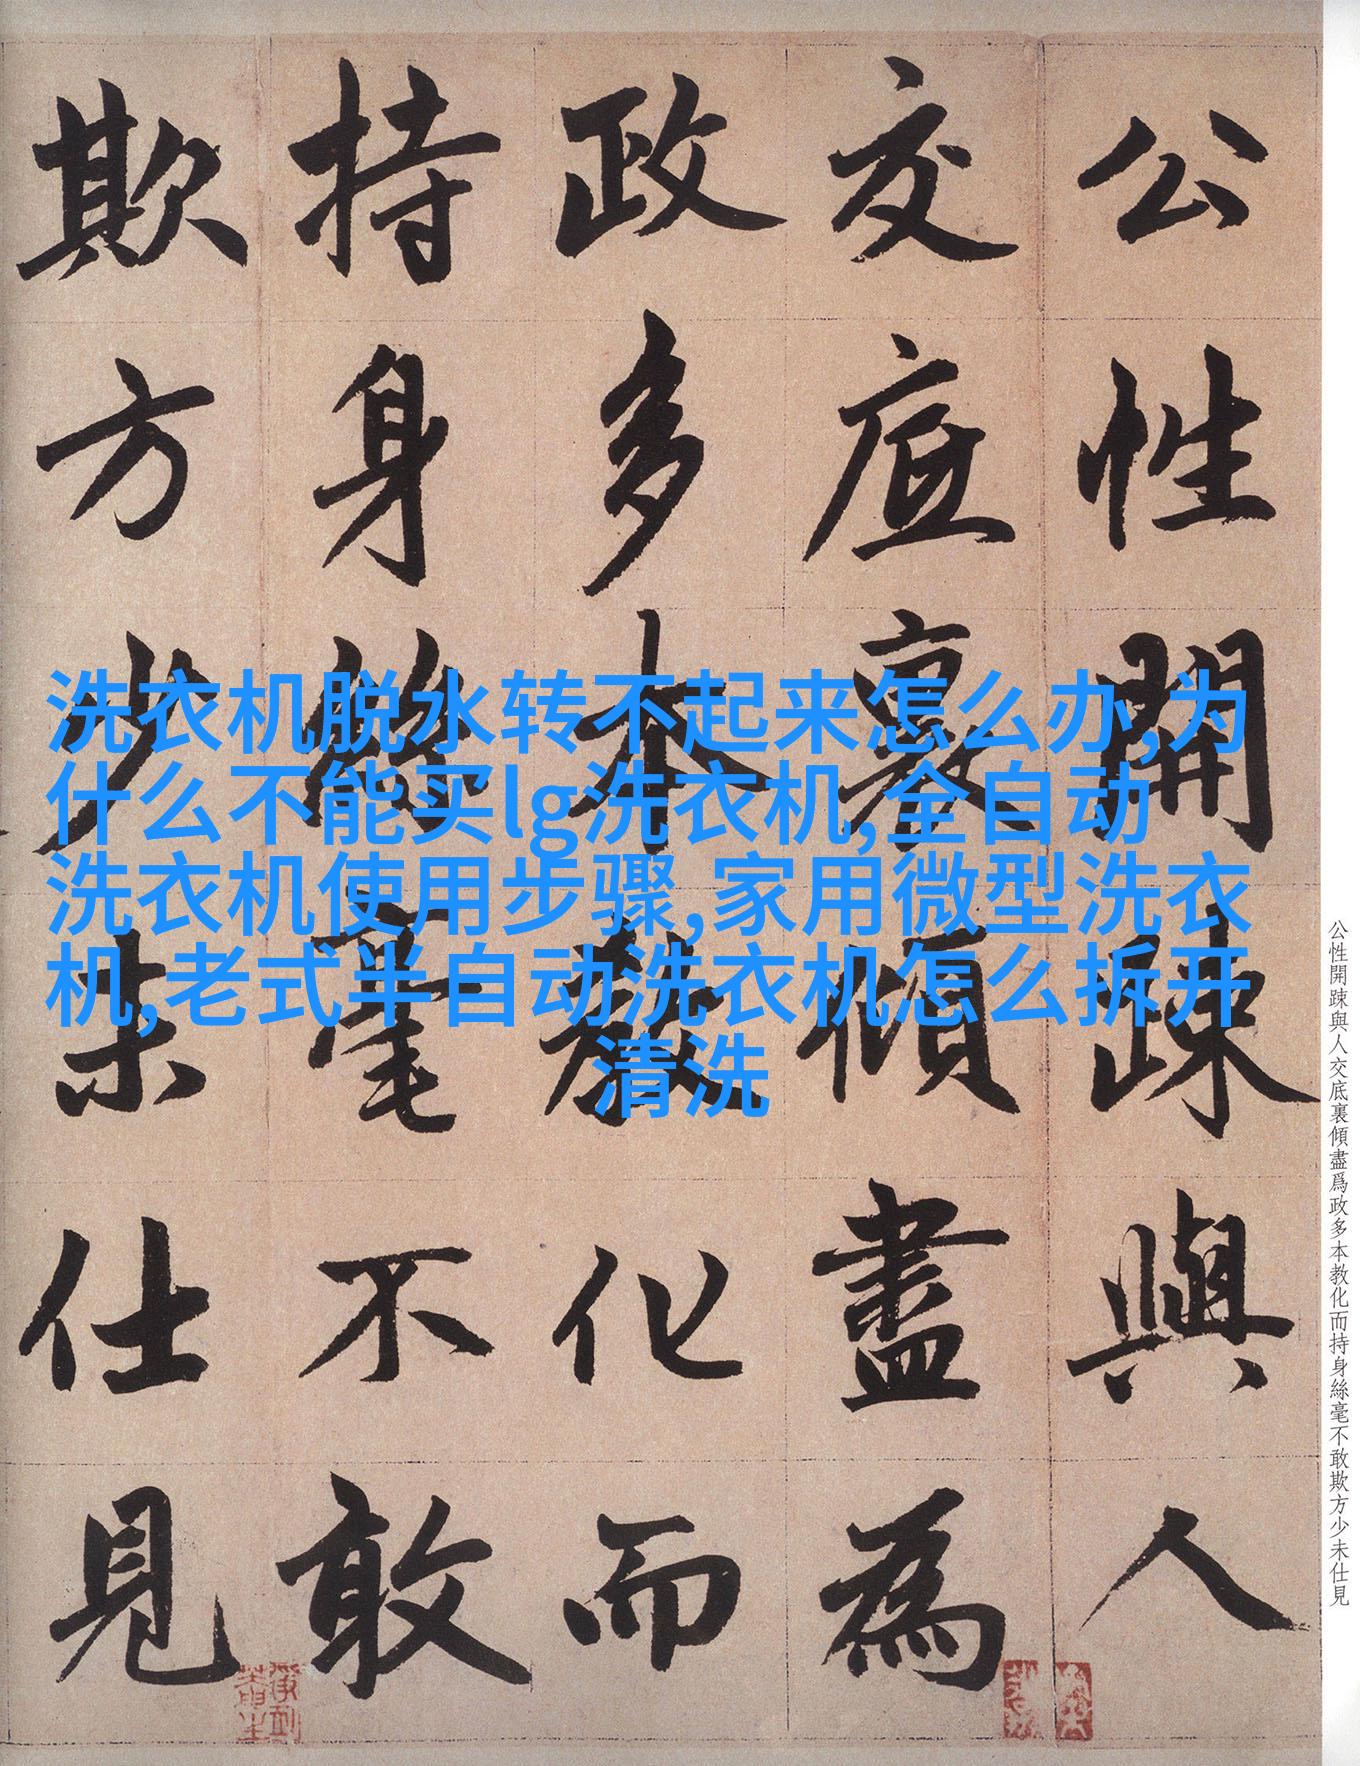 公性開踈與人
交底裏傾盡為
政多本教化而
持身絲毫不敢
欺方少未仕見
洗衣机脱水转不起来怎么办,为
什么不能买lg洗衣机,全自动
洗衣机使用步骤,家用微型洗衣
机,老式半自动洗衣机怎么拆开
清洗
公性開踈與人交底裏傾盡爲政多本教化而持身絲毫不敢欺方少未仕見